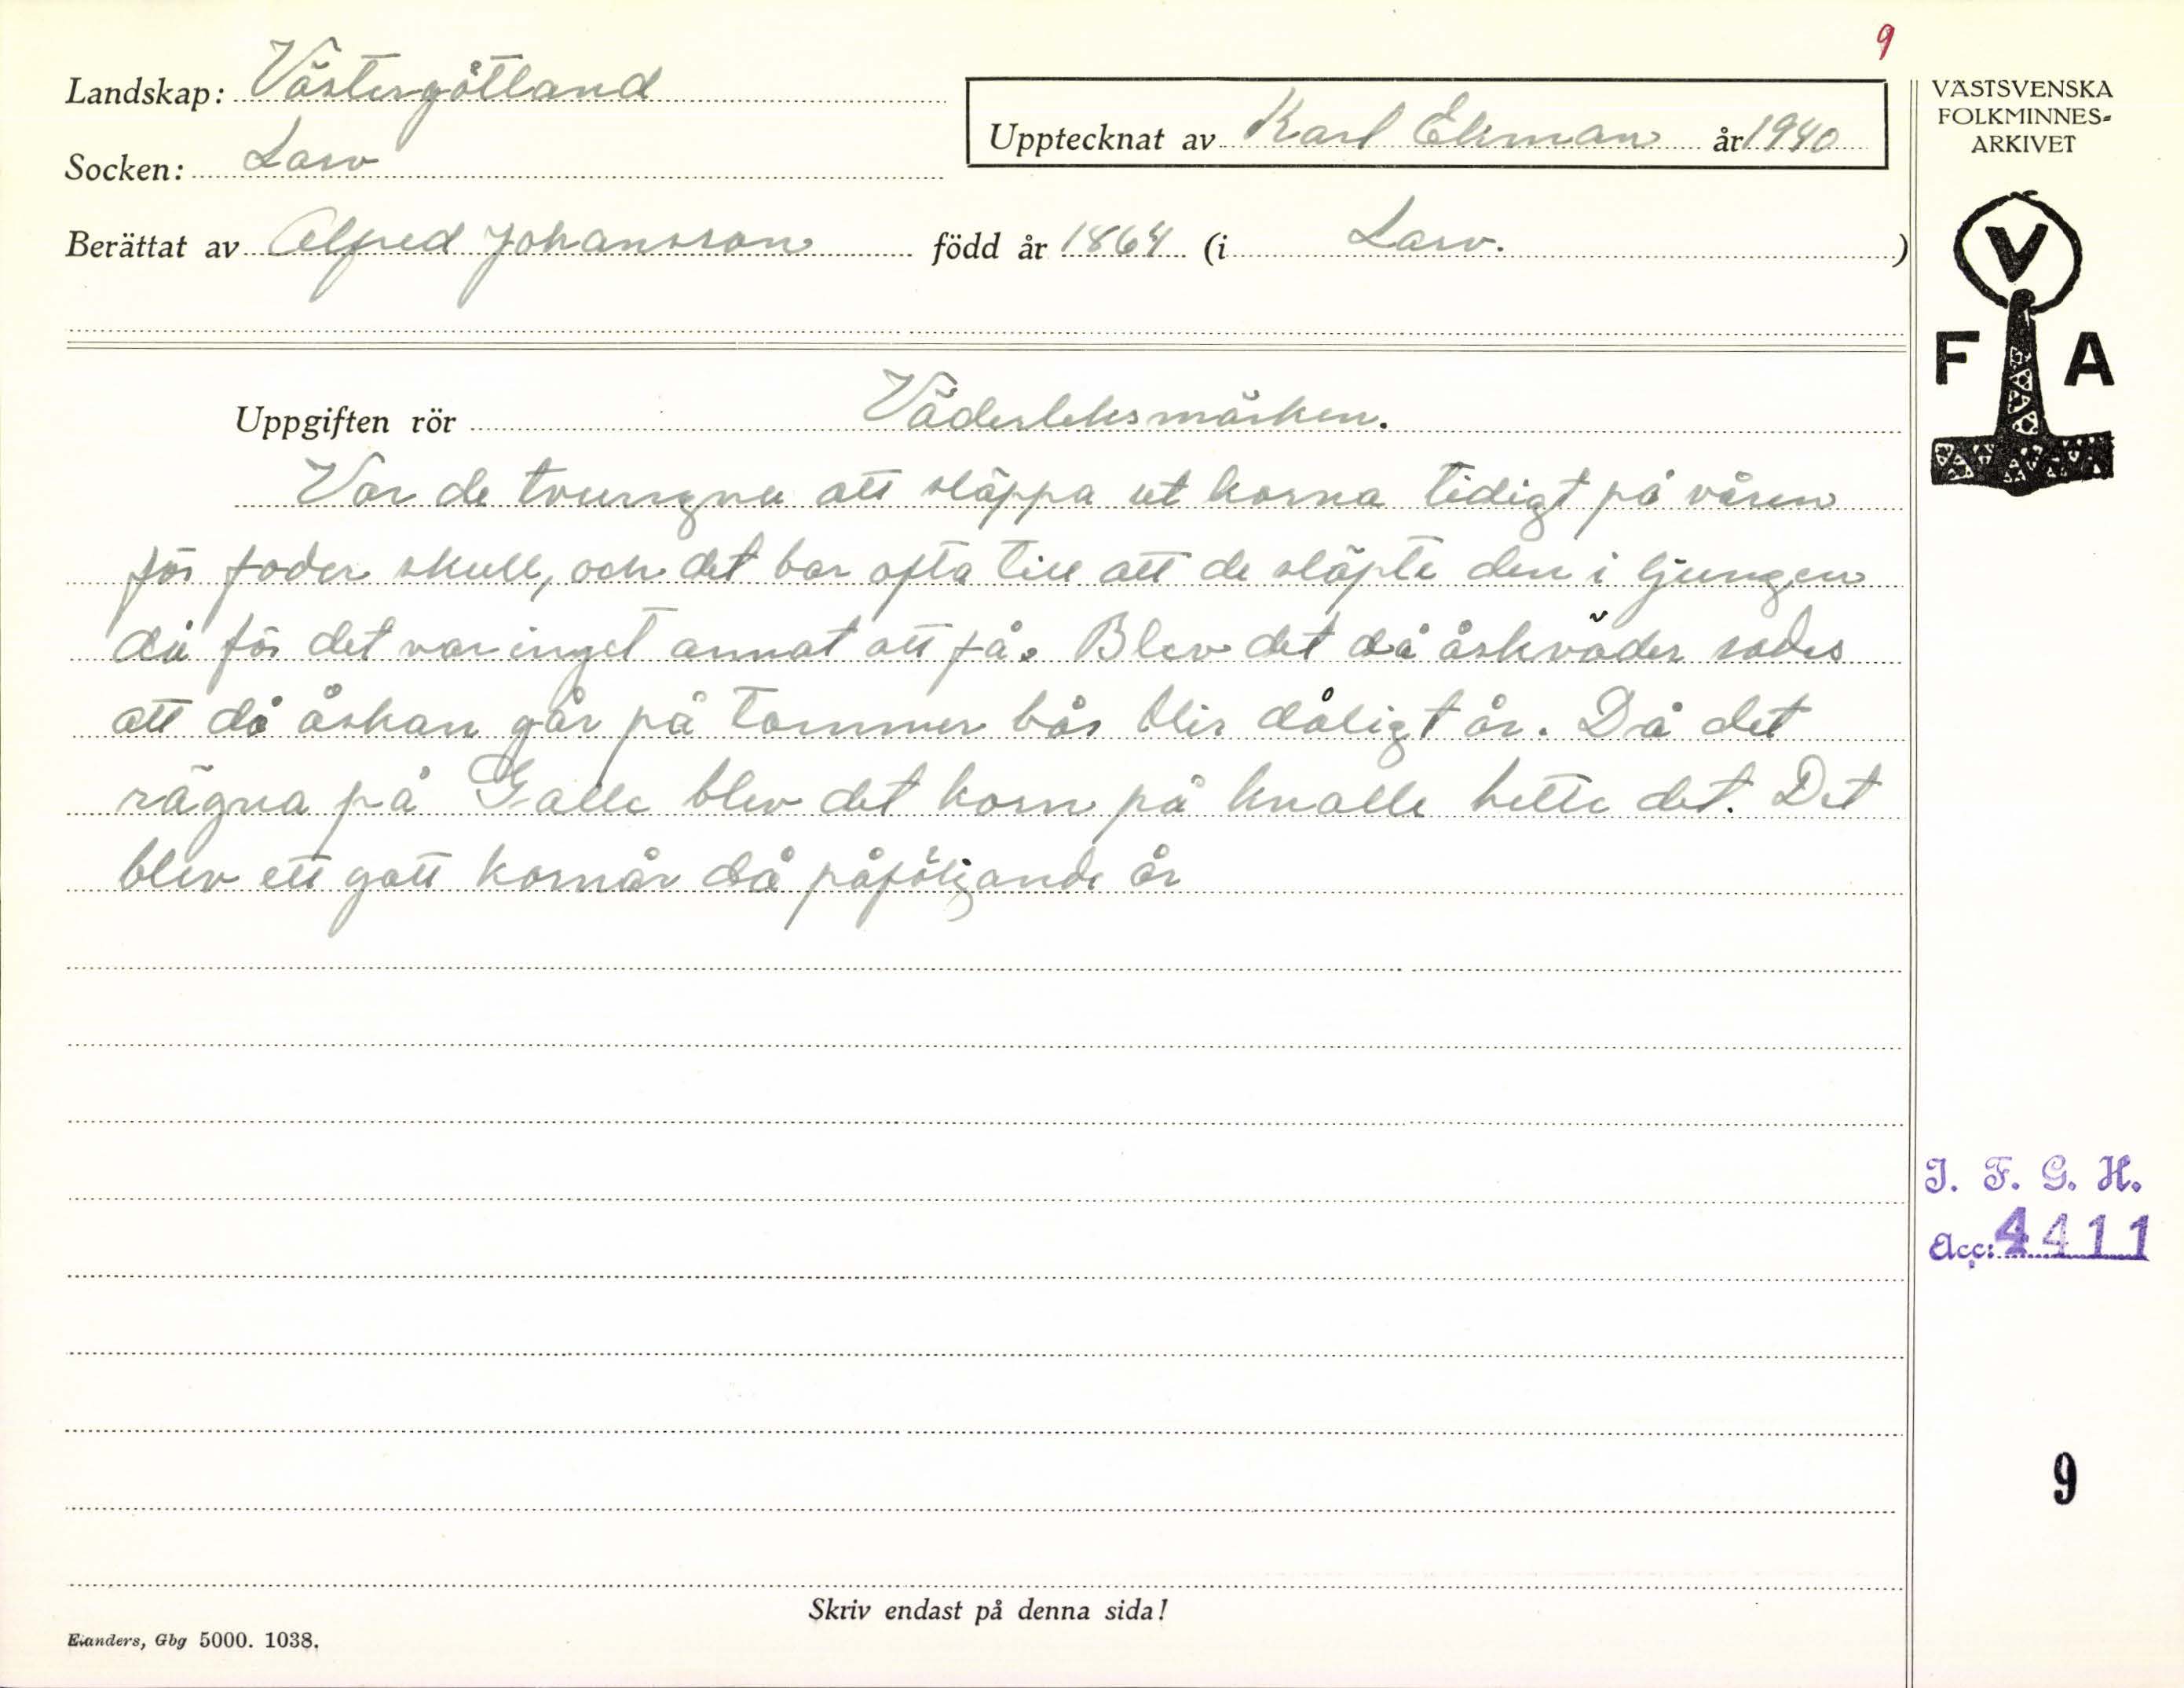 9
Landskap: Västergötland
Socken: Larv
Upptecknat av Karl Ekman år 1940
Berättat av Alfred Johansson född år 1864 (i Larv.)
VÄSTSVENSKA
FOLKMINNES-
ARKIVET
V
F A
Uppgiften rör Väderleksmärken.
Var de tvungna att släppa ut korna tidigt på våren
för foder skull, och det bar ofta till att de släpte dem i ljungen
då för det var inget annat att få. Blev det då åskväder sades
att då åskan går på tommer bås blir dåligt år. Då det
rägna på Galle blev det korn på knalle hette det. Det
blev ett gott kornår då påföljande år
I. F. G. H.
Acc: 4411
9
Skriv endast på denna sida!
Evanders, Gbg 5000. 1038.